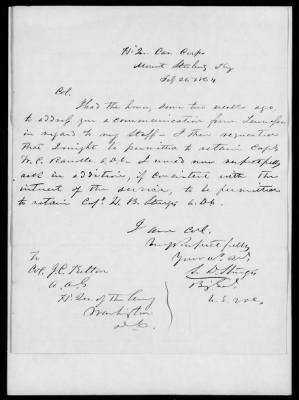 Hd Qrs Cav Corps
Mount Sterling Ky
Feb 26 1864
Col.
I had the honor, some two weeks ago,
to address you a communication from Tennessee
in regard to my staff — I then requested
that I might be permitted to retain Capt
W. C. Rawolle A.D.C. I would now respectfully
ask in addition, if consistent with the
interest of the service, to be permitted
to retain Capt H. B. Sturgis A.D.C.
I am Col.
Very Respectfully
Your ob. svt.
S. D. Sturgis
B. Gen.
U.S. Vols.
To
Col J.C. Kelton
A.A.G
Hd Qrs of the Army
Washington
D.C.